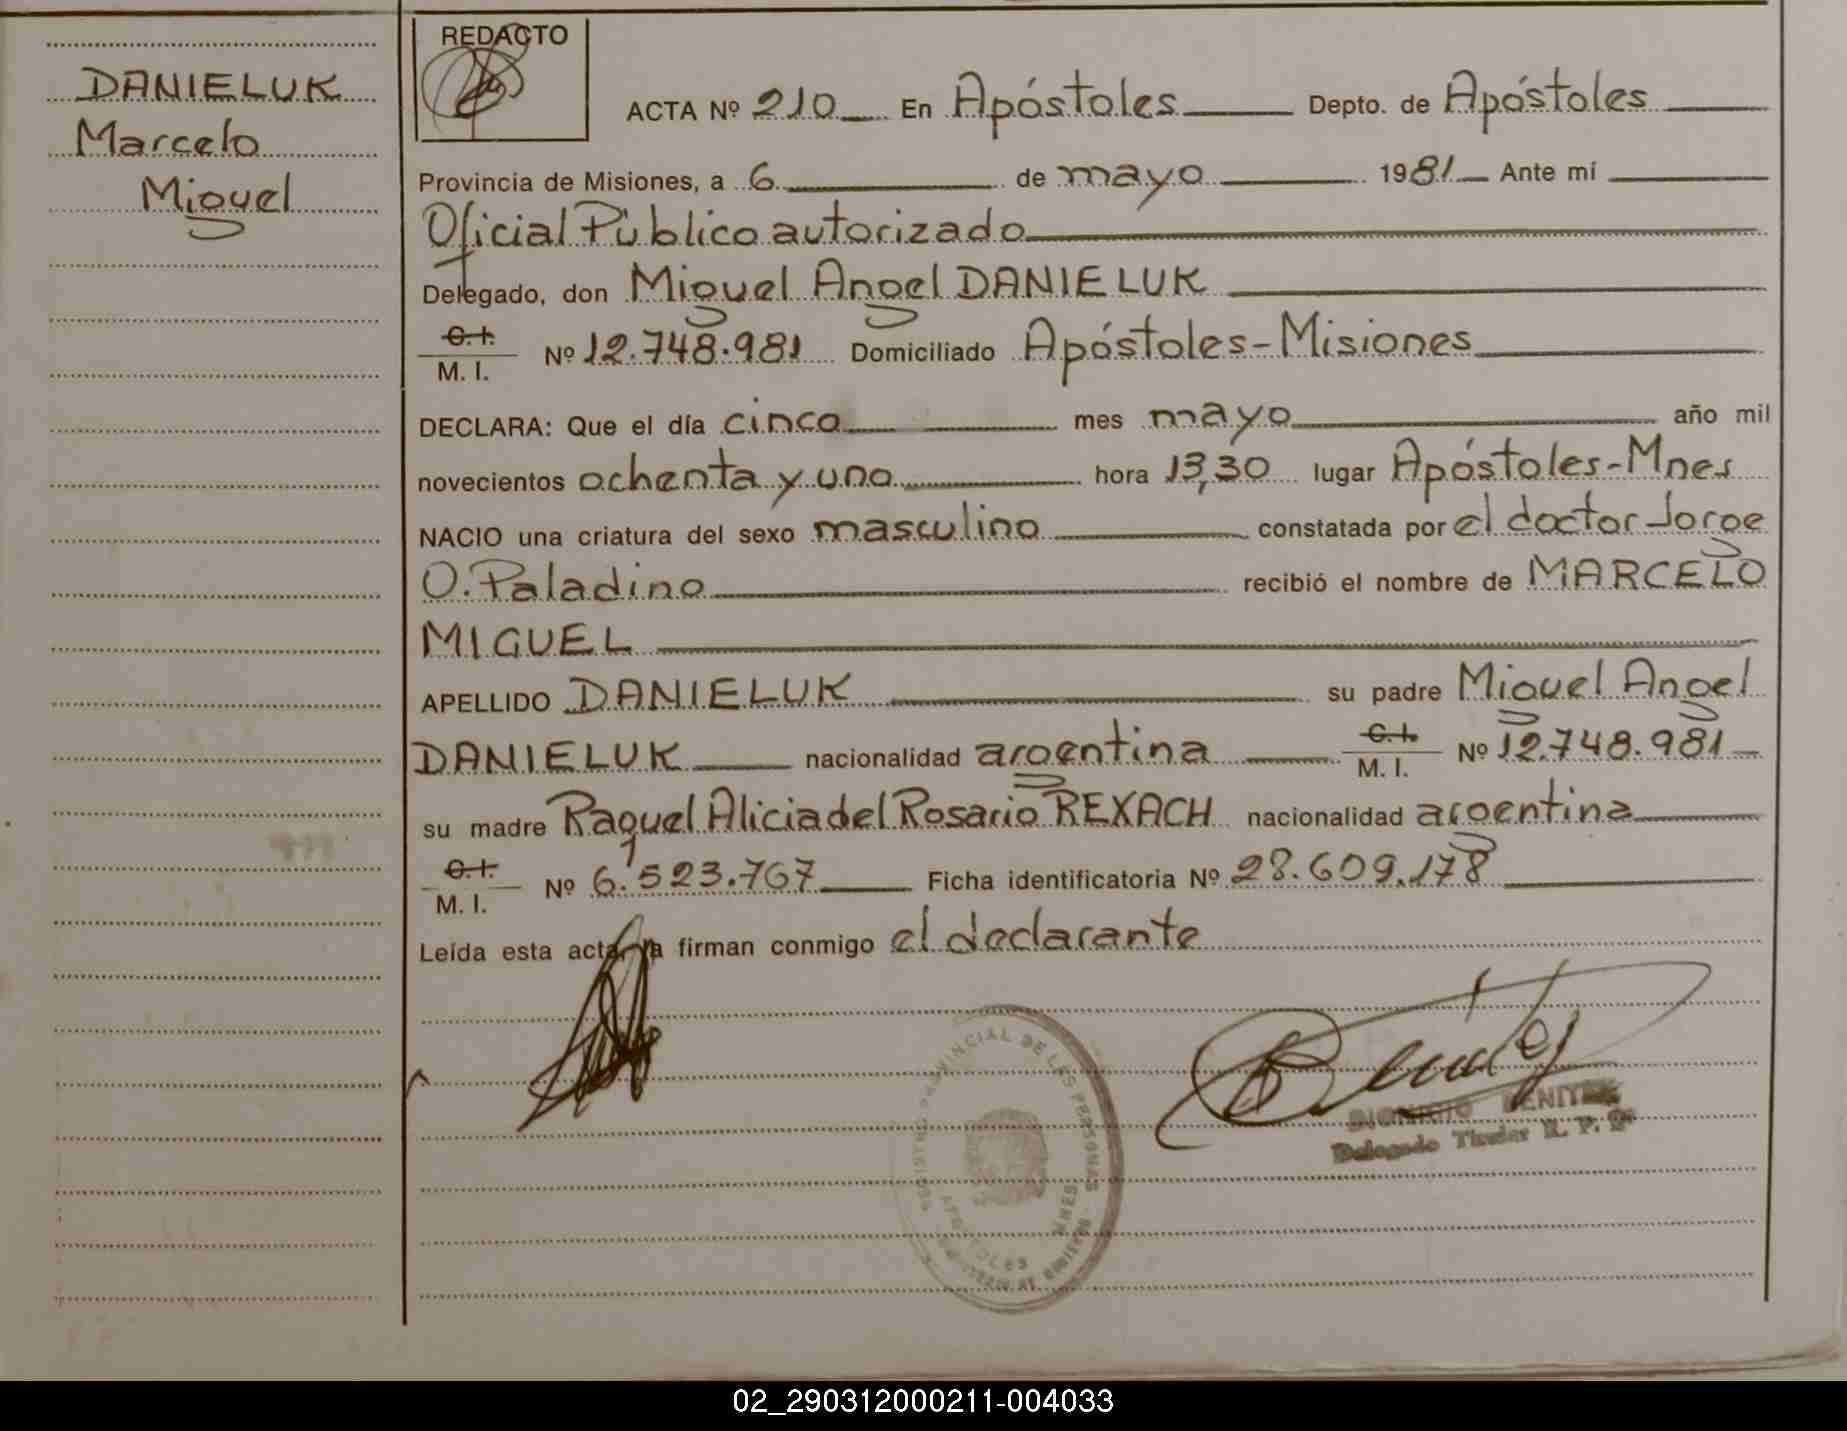 DANIELUK
Marcelo
Miguel
REDACTO
ACTA Nº 210 En Apóstoles Depto. de Apóstoles
Provincia de Misiones, a 6 de mayo 1981 Ante mí
Oficial Público autorizado
Delegado, don Miguel Angel DANIELUK
C.I.
M. I. Nº 12.748.981 Domiciliado Apóstoles-Misiones
DECLARA: Que el día cinco mes mayo año mil
novecientos ochenta y uno hora 13,30 lugar Apóstoles-Mnes
NACIO una criatura del sexo masculino constatada por el doctor Jorge
O. Paladino recibió el nombre de MARCELO
MIGUEL
APELLIDO DANIELUK su padre Miguel Angel
DANIELUK nacionalidad argentina C.I. M. I. Nº 12.748.981
su madre Raquel Alicia del Rosario REXACH nacionalidad argentina
C.I.
M. I. Nº 6.523.767 Ficha identificatoria Nº 28.609.178
Leída esta acta, la firman conmigo el declarante
REGISTRO PROVINCIAL DE LAS PERSONAS
APOSTOLES MNES
BENITEZ
Delegado Titular R. P. P.
02_290312000211-004033